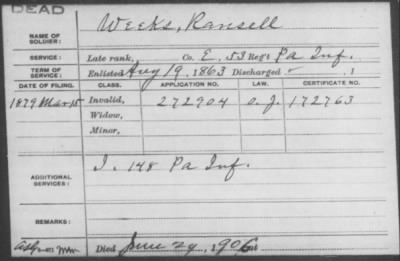 DEAD
NAME OF SOLDIER: Weeks, Ransell
SERVICE: Late rank, Co. E, 53 Reg't Pa Inf.
TERM OF SERVICE: Enlisted Aug 19, 1863 Discharged , 1
DATE OF FILING. CLASS. APPLICATION NO. LAW. CERTIFICATE NO.
1879 Mar 15 Invalid, 272904 O. J. 172763
Widow,
Minor,
ADDITIONAL SERVICES: I. 148 Pa Inf.
REMARKS:
Died June 24, 1906, at